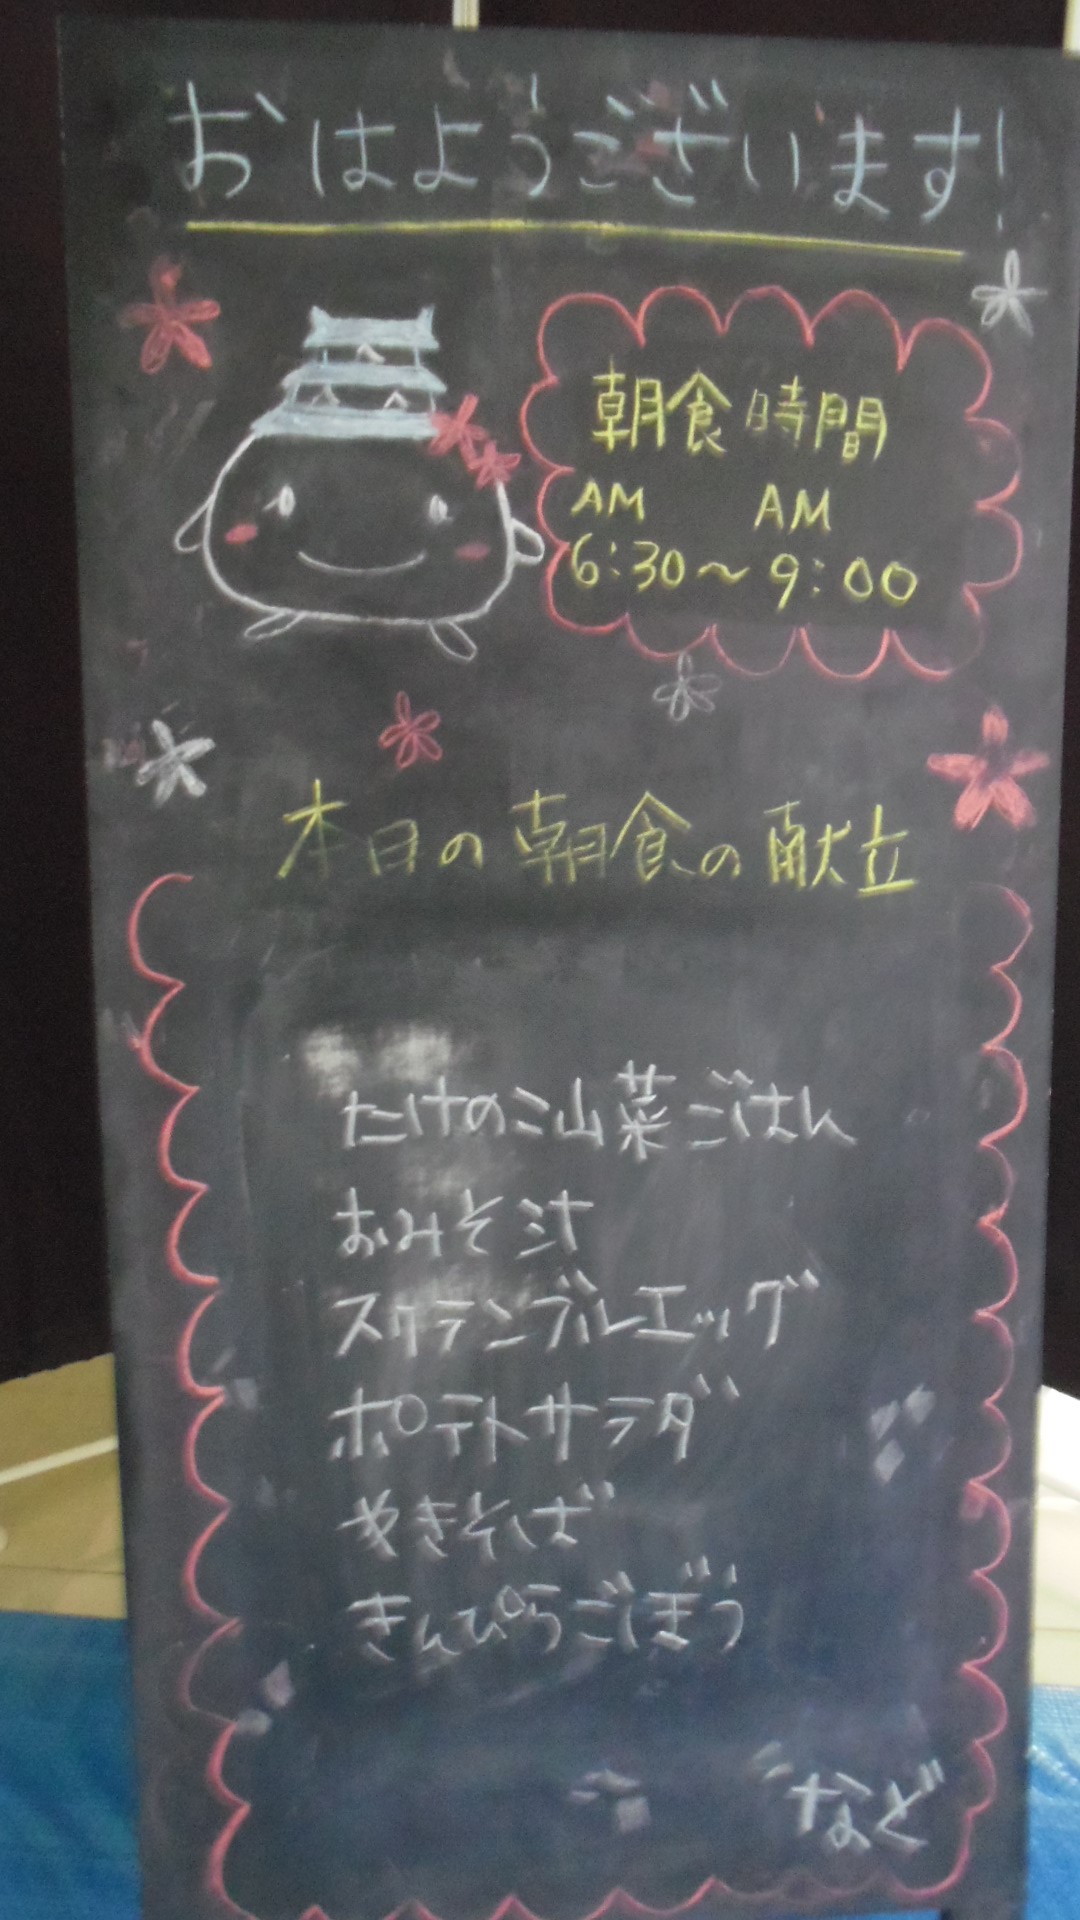 おはようございます!
朝食時間
AM AM
6:30～9:00
本日の朝食の献立
たけのこ山菜ごはん
おみそ汁
スクランブルエッグ
ポテトサラダ
やきそば
きんぴらごぼう
など